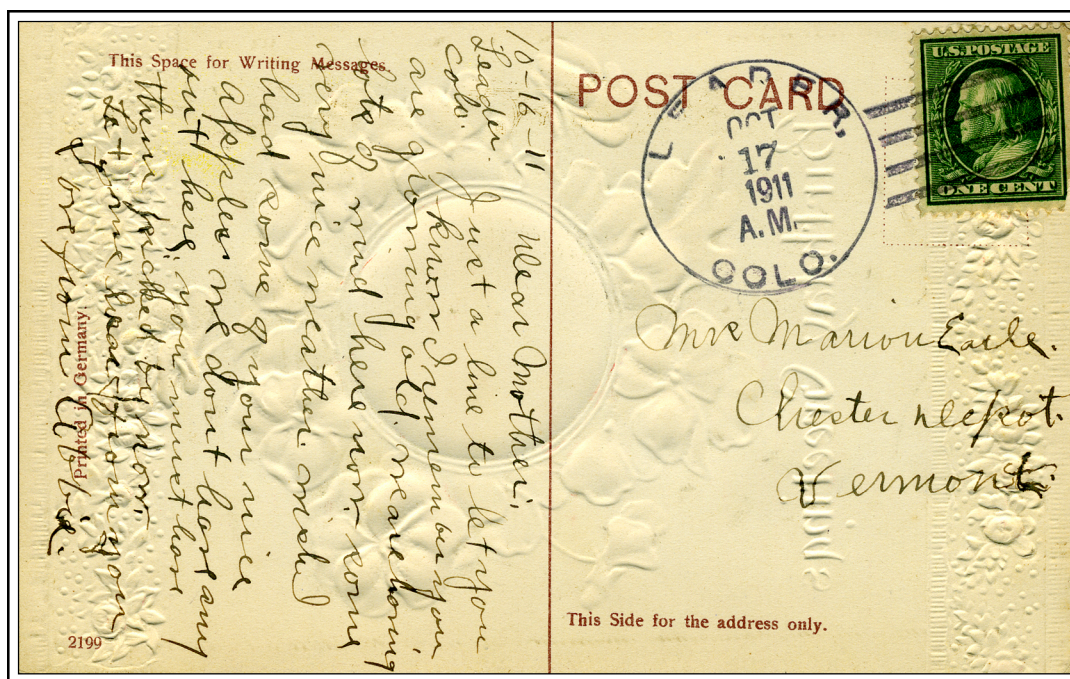 This Space for Writing Messages.
10-16-11
Leader.
Colo.
Dear Mother;
Just a line to let you
know I remember you
are growing old. we are having
lots of wind here now. some
very nice weather. wished
had some of your nice
apples we dont have any
out here, you must have
them picked by now.
from your
from Abbie.
Printed in Germany.
2199
POST CARD
LEADER,
OCT
17
1911
A.M.
COLO.
U.S. POSTAGE
ONE CENT
Mrs Marion Earle.
Chester Depot.
Vermont.
This Side for the address only.